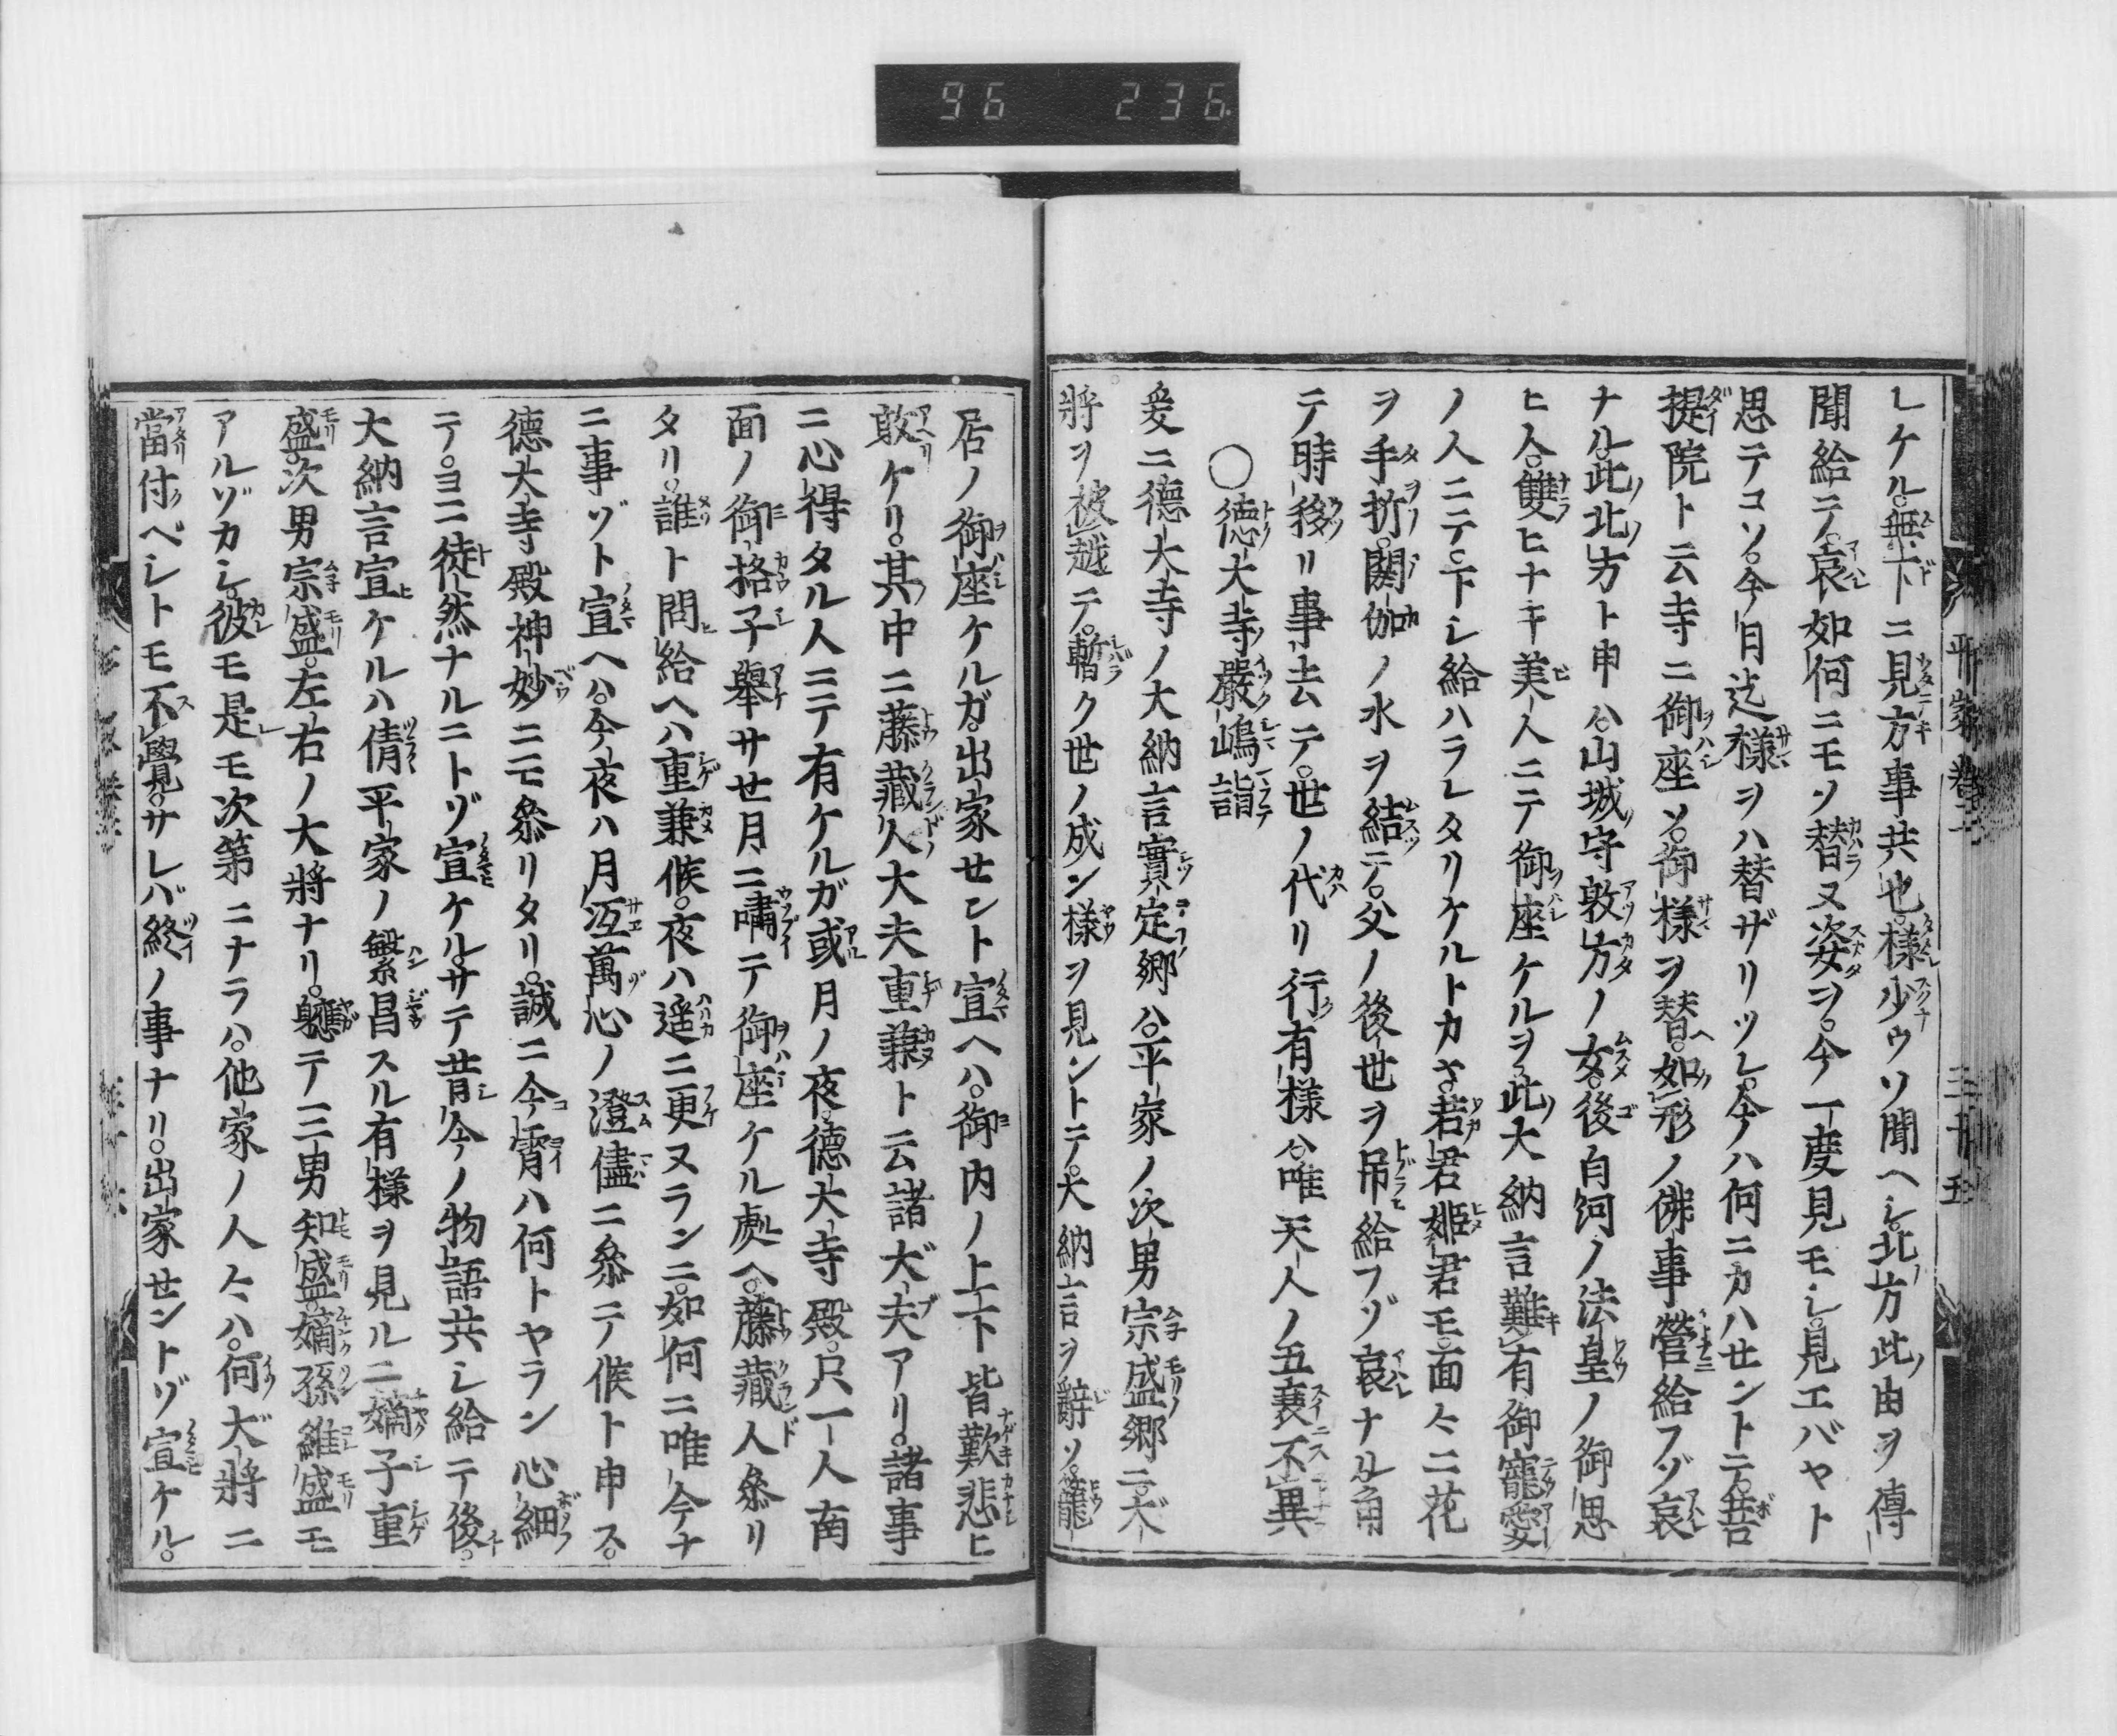 96 236
平家巻二 三十五
レケル。無下ニ見方事共也。様少ウソ聞ヘシ。北方此由ヲ傳
聞給ニノ。哀如何ニモソ替ヌ姿ヲ。今一度見モシ。見エバヤト
思テコソ。今日迄様ヲハ替ザリツレ。今ハ何ニカハセントニ。菩
提院ト云寺ニ御座ソ。御様ヲ替。如形ノ佛事營給フゾ哀
ナル。此北方ト申ハ。山城守敦方ノ女。後白河ノ法皇ノ御思
ヒ人。雙ヒナキ美人ニテ御座ケルヲ。此大納言難有御寵愛
ノ人ニテ。下シ給ハラレタリケルトカヤ。若君姫君モ。面々ニ花
ヲ手折。閼伽ノ水ヲ結テ。父ノ後世ヲ吊給フゾ哀ナル。角
テ時移リ事去テ。世ノ代リ行有様ハ。唯天人ノ五衰不異
〇德大寺嚴嶋詣
爰ニ德大寺ノ大納言實定郷ハ。平家ノ次男宗盛郷ニ。大
將ヲ被越テ。暫ク世ノ成ン様ヲ見ントテ。大納言ヲ辭ソ。籠
居ノ御座ケルガ。出家セント宣ヘハ。御内ノ上下皆歎悲ヒ
敢ケリ。其中ニ藤藏人大夫重兼ト云諸大夫アリ。諸事
ニ心得タル人ニテ有ケルガ。或月ノ夜。德大寺殿。只一人南
面ノ御格子舉サセ月ニ嘯テ御座ケル處ヘ。藤藏人參リ
タリ。誰ト問給ヘハ重兼候。夜ハ遥ニ更ヌランニ。如何ニ唯今ナ
ニ事ゾト宣ヘハ。今夜ハ月冱萬心ノ澄儘ニ參テ候ト申ス。
德大寺殿神妙ニモ參リタリ。誠ニ今霄ハ何トヤラン心細
テ。ヨニ徒然ナルニトゾ宣ケル。サテ昔今ノ物語共シ給テ後。
大納言宣ケルハ倩平家ノ繁昌スル有様ヲ見ルニ嫡子重
盛。次男宗盛。左右ノ大將ナリ。軈テ三男知盛。嫡孫維盛モ
アルゾカシ。彼モ是モ次第ニナラハ。他家ノ人々ハ。何大將ニ
當付ベシトモ不覺。サレバ終ノ事ナリ。出家セントゾ宣ケル。